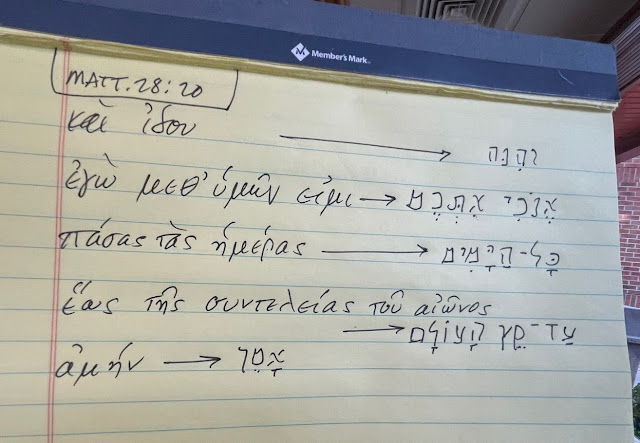 Member's Mark
MATT. 28:20
καὶ ἰδου → וְהִנֵּה
ἐγὼ μεθ' ὑμῶν εἰμι → אָנֹכִי אִתְּכֶם
πάσας τὰς ἡμέρας → כָּל־הַיָּמִים
ἕως τῆς συντελείας τοῦ αἰῶνος
→ עַד־קֵץ הָעוֹלָם
ἀμήν → אָמֵן